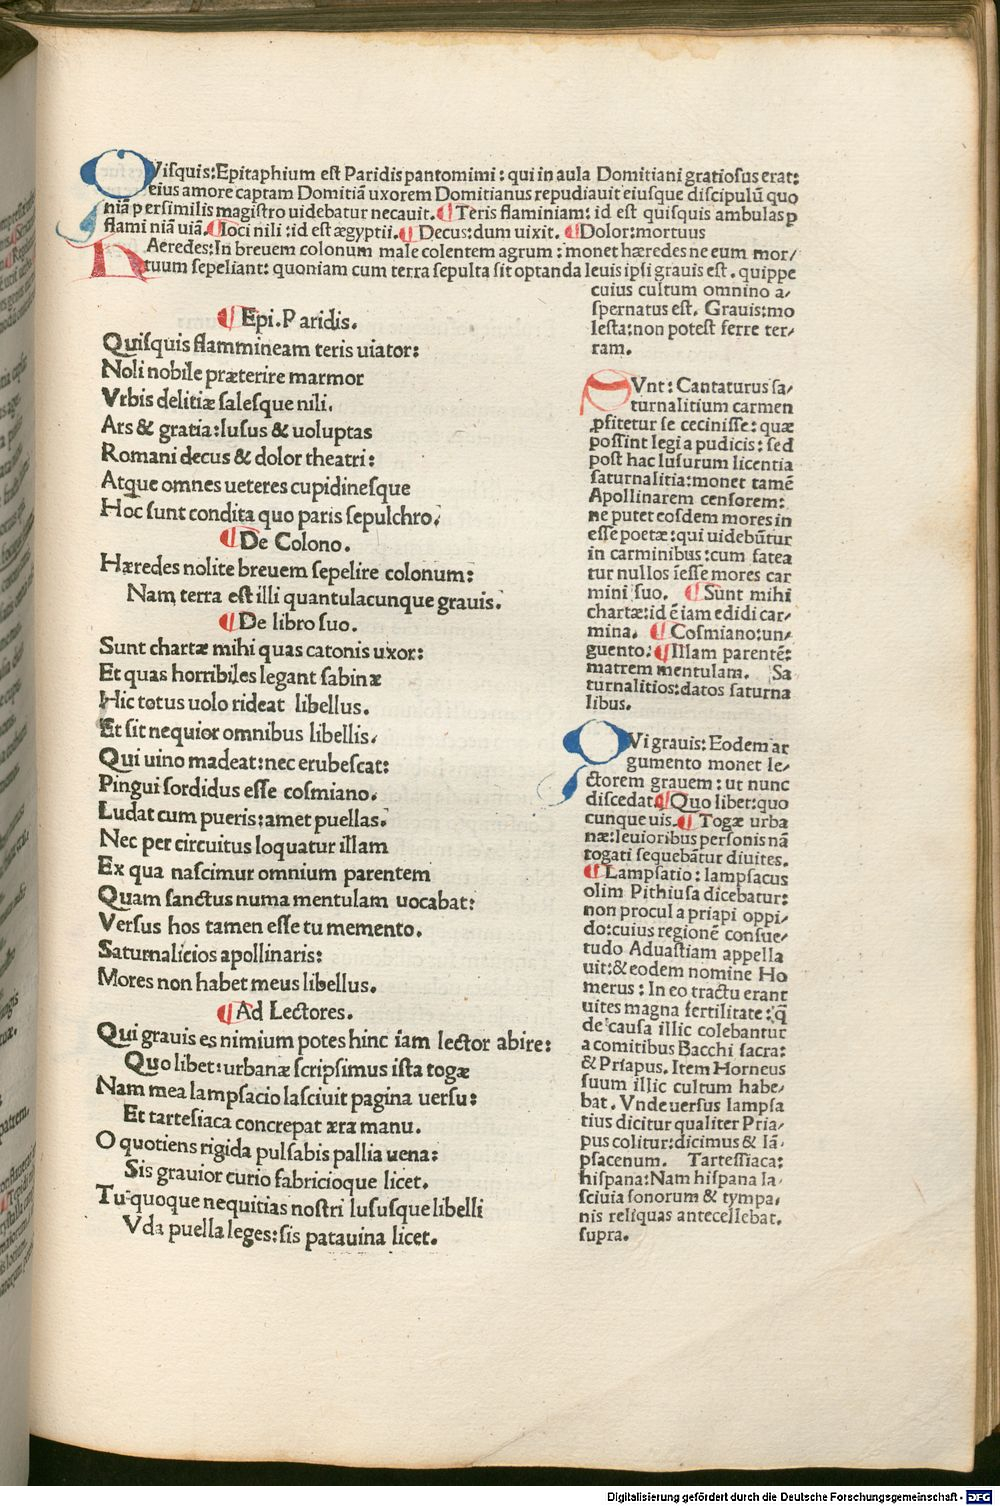 QVisquis:Epitaphium est Paridis pantomimi: qui in aula Domitiani gratiosus erat:
eius amore captam Domitiā uxorem Domitianus repudiauit eiusque discipulū quo
niā persimilis magistro uidebatur necauit. ¶ Teris flaminiam: id est quisquis ambulas ꝑ
flami niā uiā. ¶ Ioci nili: id est ægyptii. ¶ Decus: dum uixit. ¶ Dolor: mortuus
HAeredes: In breuem colonum male colentem agrum: monet hæredes ne eum mor/
tuum sepeliant: quoniam cum terra sepulta sit optanda leuis ipsi grauis est. quippe
cuius cultum omnino a/
spernatus est. Grauis: mo
lesta: non potest ferre ter/
ram.
¶ Epi. Paridis.
Quisquis flammineam teris uiator:
Noli nobile præterire marmor
Vrbis delitiæ salesque nili.
Ars & gratia: lusus & uoluptas
Romani decus & dolor theatri:
Atque omnes ueteres cupidinesque
Hoc sunt condita quo paris sepulchro.
¶ De Colono.
Hæredes nolite breuem sepelire colonum:
Nam terra est illi quantulacunque grauis.
¶ De libro suo.
Sunt chartæ mihi quas catonis uxor:
Et quas horribiles legant sabinæ
Hic totus uolo rideat libellus.
Et sit nequior omnibus libellis.
Qui uino madeat: nec erubescat:
Pingui sordidus esse cosmiano.
Ludat cum pueris: amet puellas.
Nec per circuitus loquatur illam
Ex qua nascimur omnium parentem
Quam sanctus numa mentulam uocabat:
Versus hos tamen esse tu memento.
Saturnalicios apollinaris:
Mores non habet meus libellus.
¶ Ad Lectores.
Qui grauis es nimium potes hinc iam lector abire:
Quo libet: urbanæ scripsimus ista togæ
Nam mea lampsacio lasciuit pagina uersu:
Et tartesiaca concrepat æra manu.
O quotiens rigida pulsabis pallia uena:
Sis grauior curio fabricioque licet.
Tu quoque nequitias nostri lususque libelli
Vda puella leges: sis patauina licet.
SVnt: Cantaturus sa/
turnalitium carmen
ꝓfitetur se cecinisse: quæ
possint legi a pudicis: sed
post hac lusurum licentia
saturnalitia: monet tamē
Apollinarem censorem:
ne putet eosdem mores in
esse poetæ: qui uidebūtur
in carminibus: cum fatea
tur nullos īesse mores car
mini suo. ¶ Sunt mihi
chartæ: id ē iam edidi car/
mina. ¶ Cosmiano: un/
guento. ¶ Illam parentē:
matrem mentulam. Sa
turnalitios: datos saturna
libus.
QVi grauis: Eodem ar
gumento monet le/
ctorem grauem: ut nunc
discedat. ¶ Quo libet: quo
cunque uis. ¶ Togæ urba
næ: leuioribus personis nā
togati sequebātur diuites.
¶ Lampsatio: lampsacus
olim Pithiusa dicebatur:
non procul a priapi oppi/
do: cuius regionē consue/
tudo Aduastiam appella
uit: & eodem nomine Ho
merus: In eo tractu erant
uites magna fertilitate: q̄
de causa illic colebantur
a comitibus Bacchi sacra:
& Priapus. Item Horneus
suum illic cultum habe/
bat. Vnde uersus lampsa
tius dicitur qualiter Pria/
pus colitur: dicimus & lā/
psacenum. Tartessiaca:
hispana: Nam hispana la/
sciuia sonorum & tympa/
nis reliquas antecellebat.
supra.
Digitalisierung gefördert durch die Deutsche Forschungsgemeinschaft - DFG